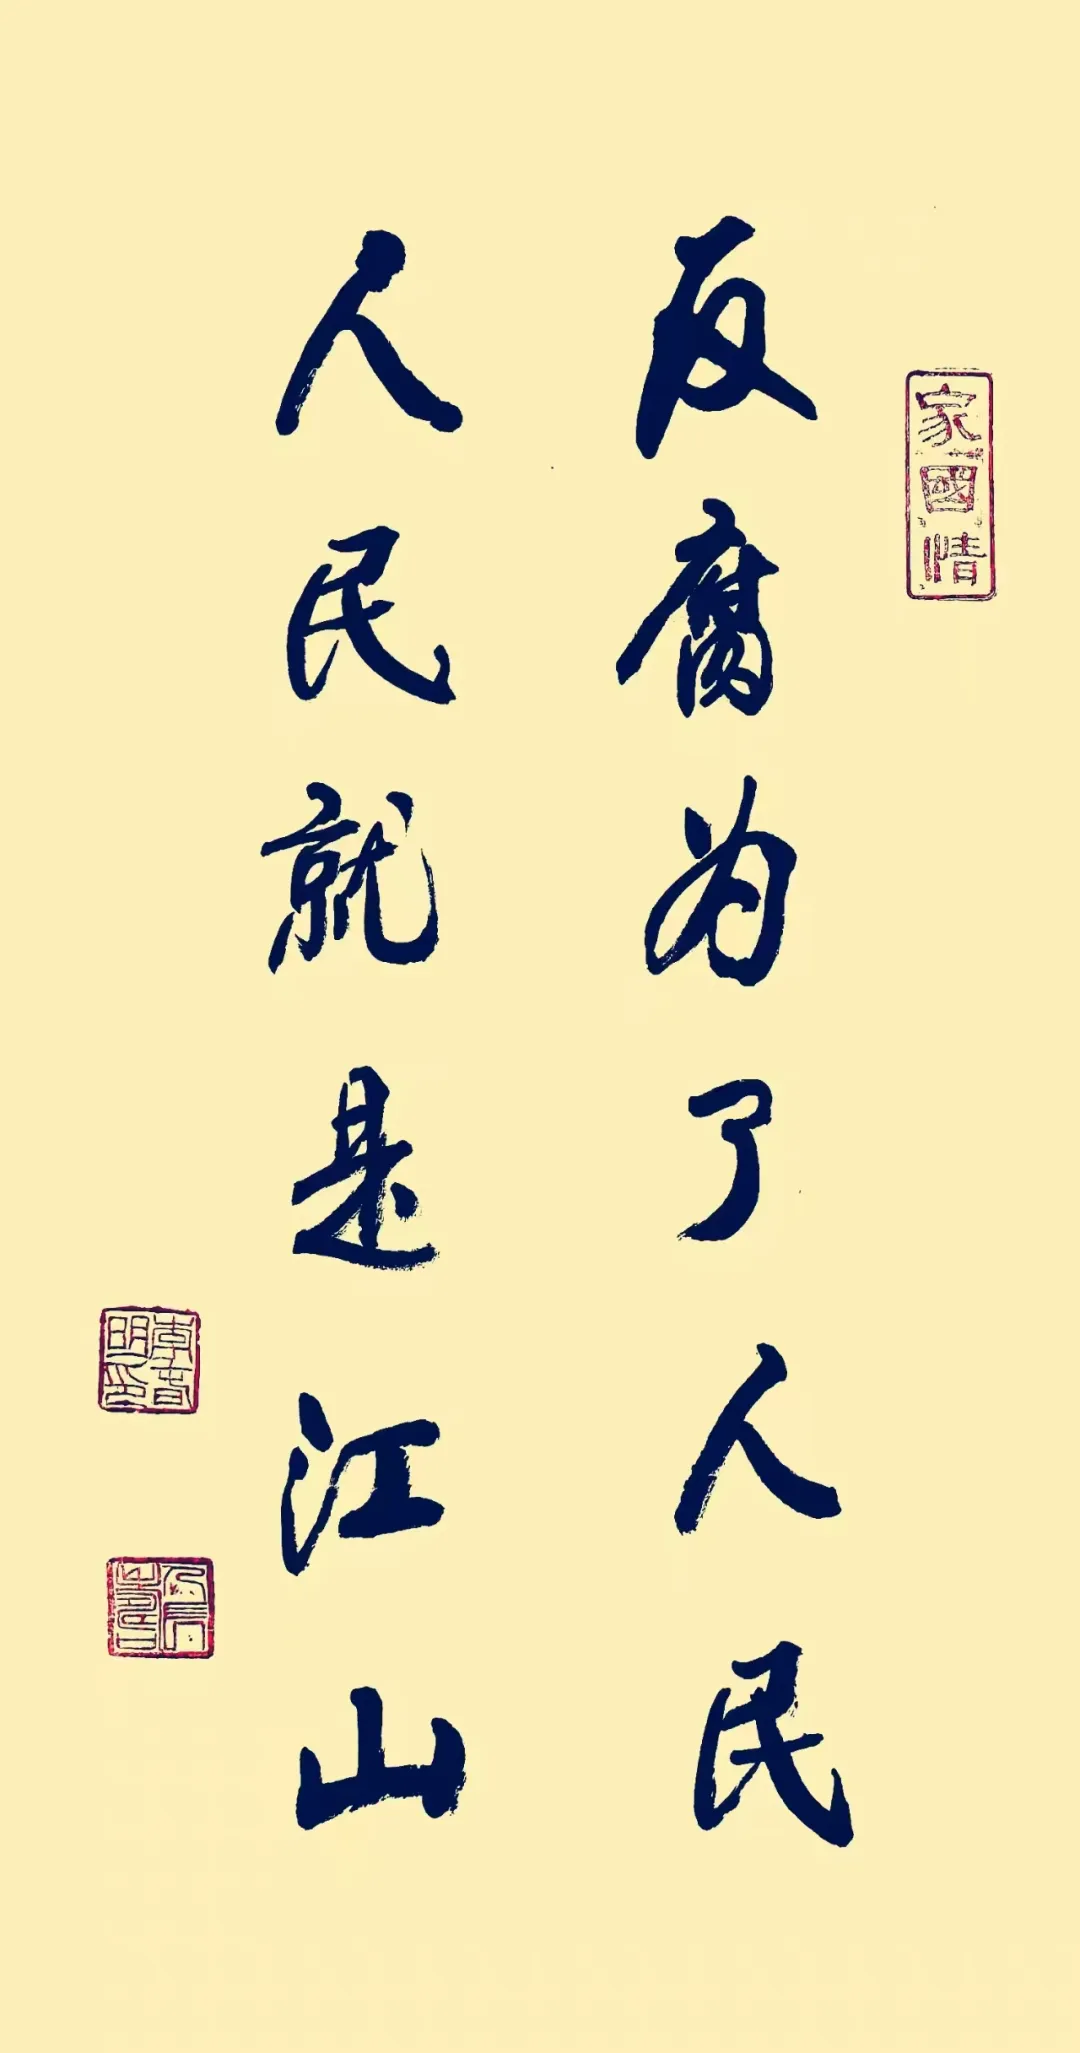 家國情
反腐为了人民
人民就是江山